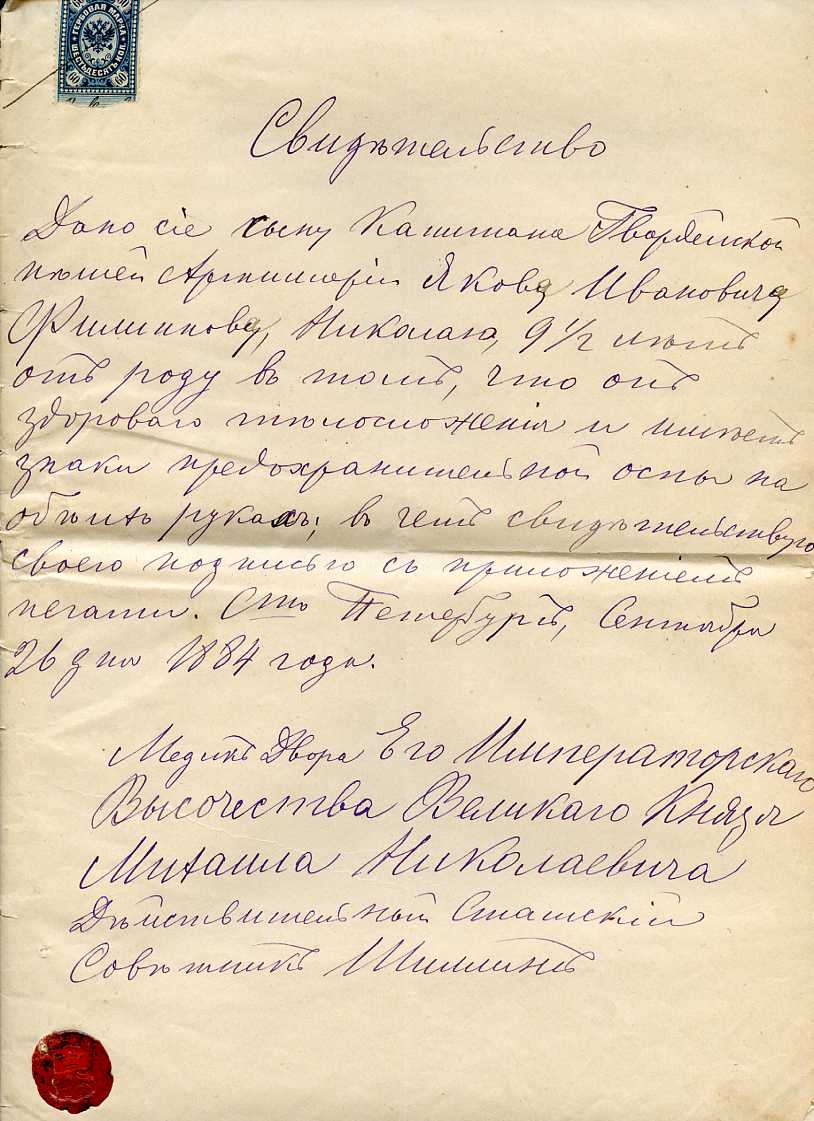 ГЕРБОВАЯ МАРКА
ШЕСТЬДЕСЯТЪ КОП.
60 60
Свидѣтельство
Дано сіе сыну Капитана Гвардейской
пѣшей Артиллеріи Якова Ивановича
Филиппова, Николаю, 9 1/2 лѣтъ
отъ роду въ томъ, что онъ
здороваго тѣлосложенія и имѣетъ
знаки предохранительной оспы на
обѣихъ рукахъ; въ чемъ свидѣтельствую
своею подписью съ приложеніемъ
печати. Стъ Петербургъ, Сентября
26 дня 1884 года.
Медикъ Двора Его Императорскаго
Высочества Великаго Князя
Михаила Николаевича
Дѣйствительный Статскій
Совѣтникъ